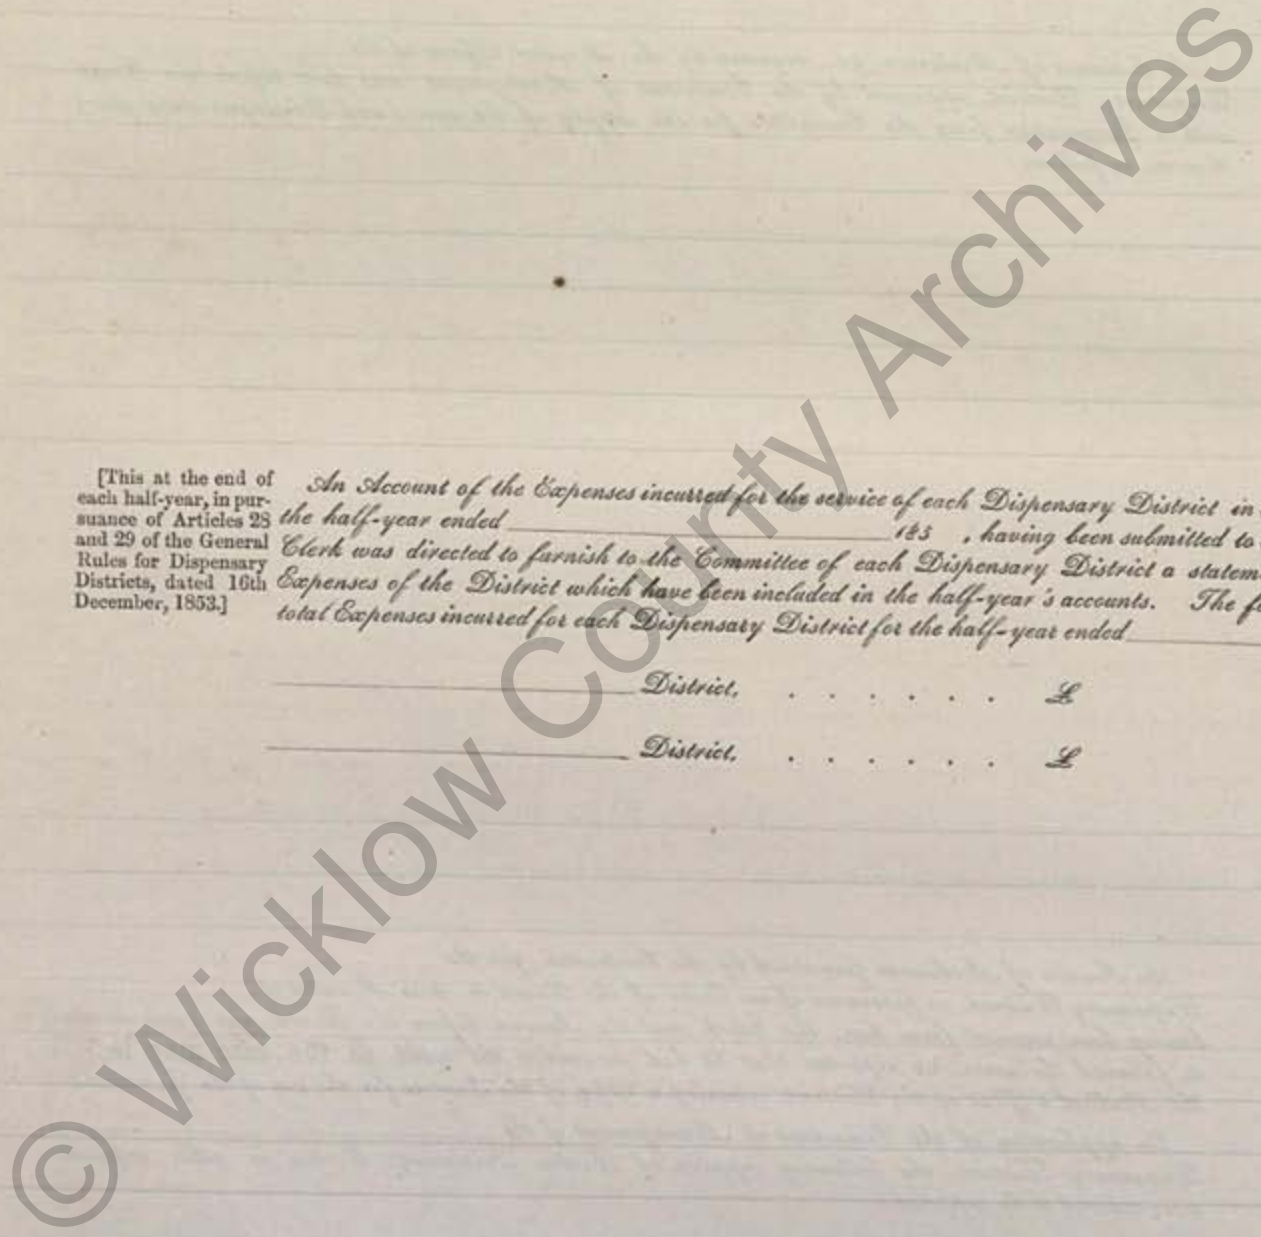 [This at the end of
each half-year, in pur-
suance of Articles 28
and 29 of the General
Rules for Dispensary
Districts, dated 16th
December, 1853.]
An Account of the Expenses incurred for the service of each Dispensary District in
the half-year ended 185 , having been submitted to
Clerk was directed to furnish to the Committee of each Dispensary District a statem
Expenses of the District which have been included in the half-year's accounts. The fo
total Expenses incurred for each Dispensary District for the half-year ended
District, . . . . . . £
District, . . . . . . £
© Wicklow County Archives